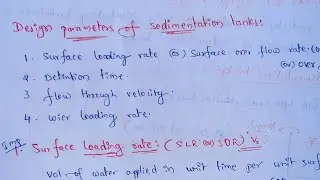 Design parameters of sedimentation tanks:
1. Surface loading rate (or) Surface over flow rate (or)
(or) over
2. Detention time.
3. flow through velocity.
4. Wier loading rate.
1. Surface loading rate: (SLR (or) SOR) Vs
Vol- of water applied in unit time per unit surf